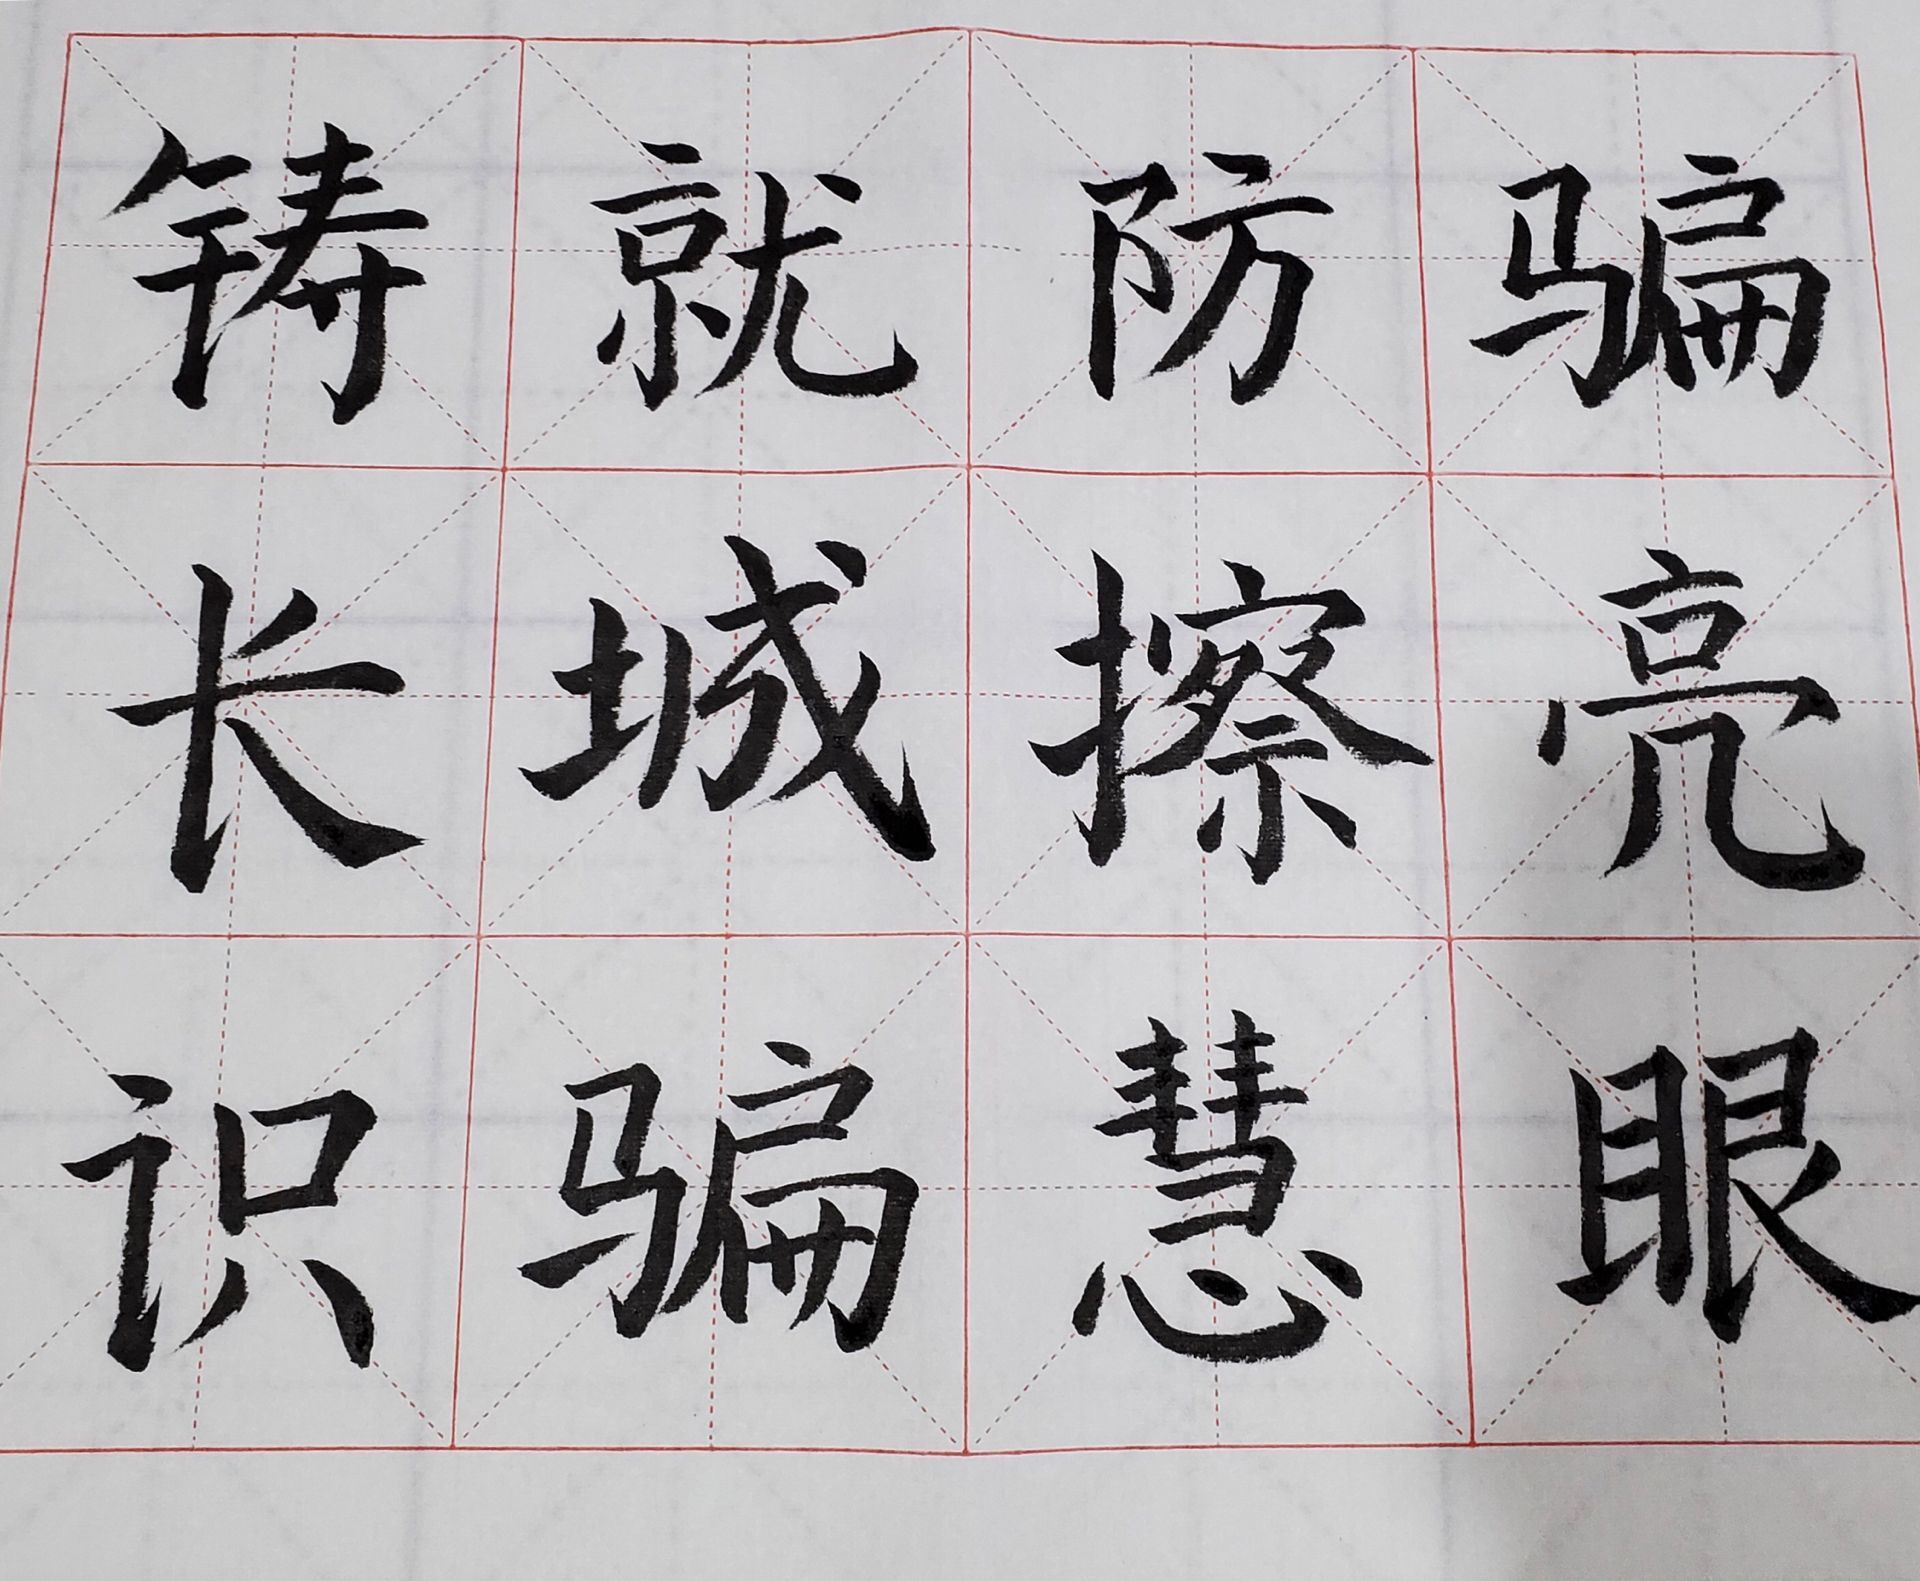 铸就防骗
长城擦亮
识骗慧眼